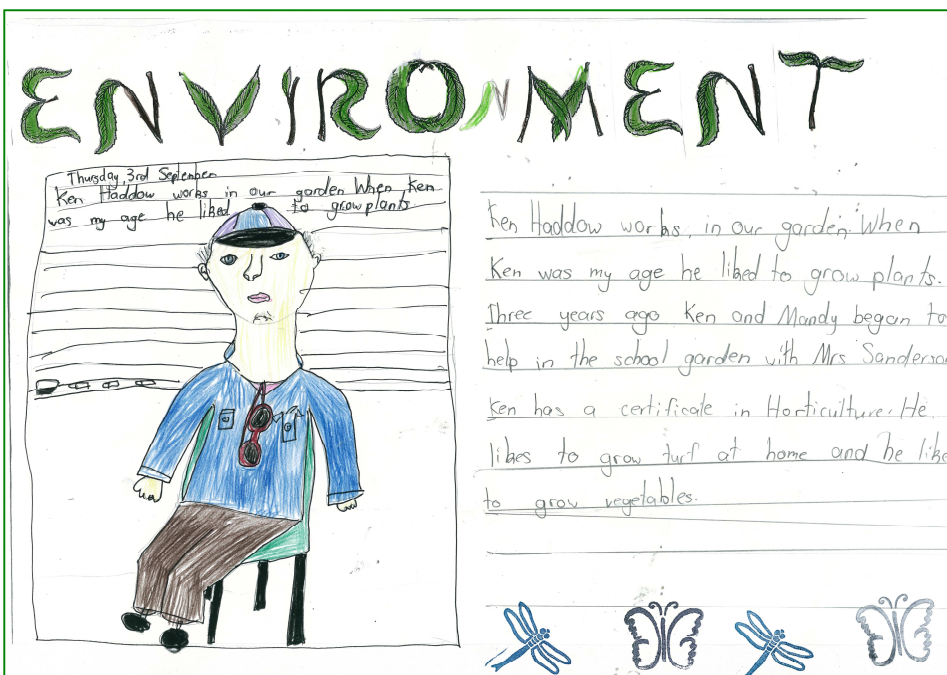 ENVIRONMENT
Thursday, 3rd September
Ken Haddow works in our garden When Ken
was my age he liked to grow plants
Ken Haddow works in our garden. When
Ken was my age he liked to grow plants.
Three years ago Ken and Mandy began to
help in the school garden with Mrs Sanderson
Ken has a certificate in Horticulture. He
likes to grow turf at home and he like
to grow vegetables.